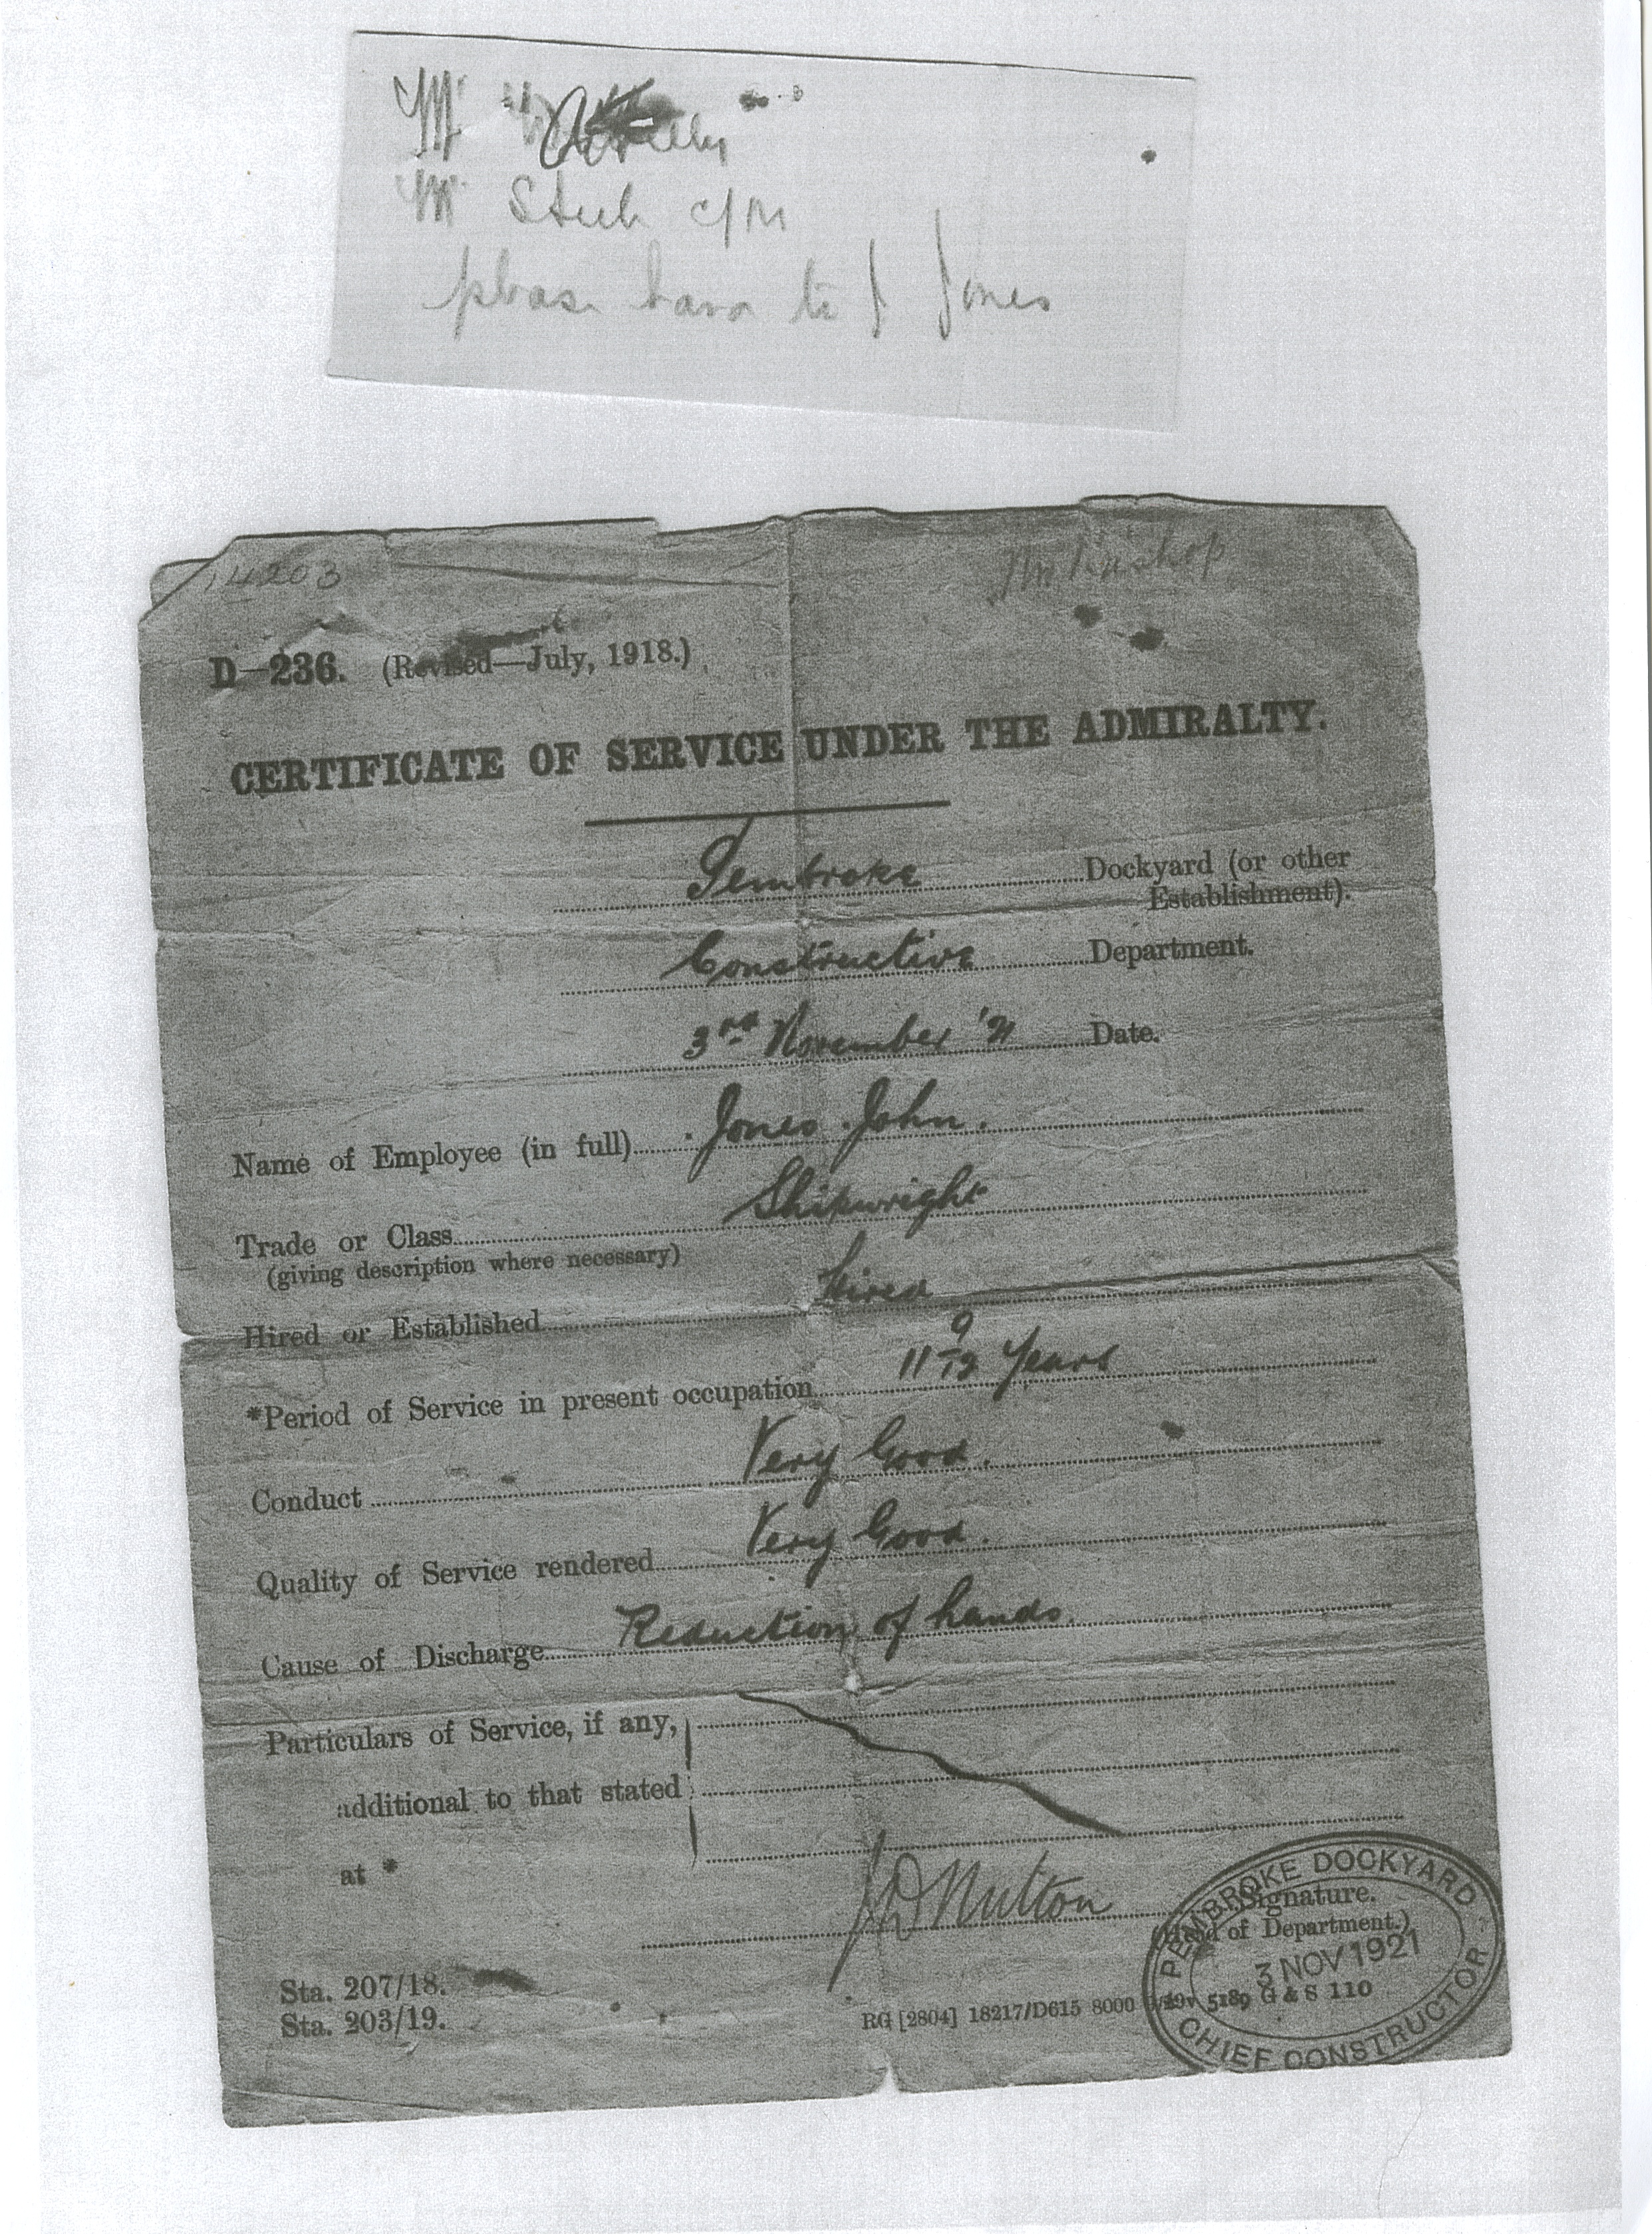 Mr
Mr Steel c/m
please have to J Jones
14203
D—236. (Revised—July, 1918.)
CERTIFICATE OF SERVICE UNDER THE ADMIRALTY.
Pembroke Dockyard (or other
Establishment).
Constructive Department.
3rd November '21 Date.
Name of Employee (in full) Jones John.
Trade or Class Shipwright
(giving description where necessary)
Hired or Established Hired
*Period of Service in present occupation 11 9/12 Years
Conduct Very Good.
Quality of Service rendered Very Good.
Cause of Discharge Reduction of hands.
Particulars of Service, if any,
additional to that stated
at *
Nutton
Signature.
(Head of Department.)
PEMBROKE DOCKYARD
3 NOV 1921
CHIEF CONSTRUCTOR
Sta. 207/18.
Sta. 203/19.
RG [2804] 18217/D615 8000 5189 G & S 110